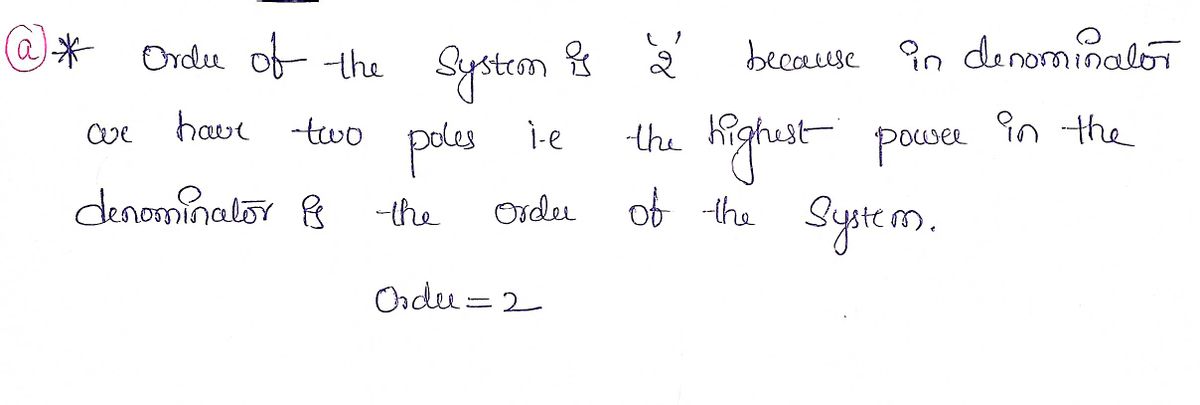 (a)* Order of the System is '2' because in denominator
we have two poles i.e the highest power in the
denominator is the order of the System.
Order = 2